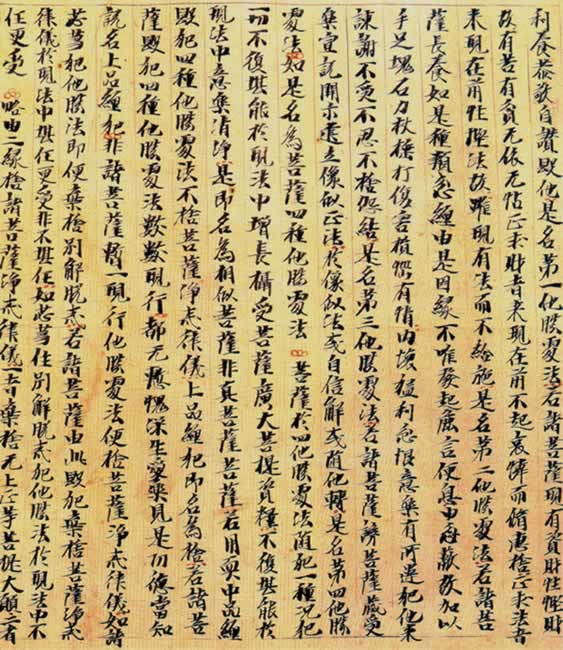 利養恭敬自讃毀他是名第一他勝處法若諸菩薩現有資財性慳財
故有苦有貧无依无怙正求財者來現在前不起哀憐而脩惠捨正求法者
來現在前性慳法故雖現有法而不給施是名第二他勝處法若諸菩
薩長養如是種類忿纏由是因緣不唯發起麁言便息由忿蔽故加以
手足塊石刀杖捶打傷害損惱有情內懷猛利忿恨意樂有所違犯他來
諫謝不受不忍不捨怨結是名第三他勝處法若諸菩薩謗菩薩藏愛
樂宣說開示建立像似正法於像似法或自信解或隨他轉是名第四他勝
處法如是名為菩薩四種他勝處法 菩薩於四他勝處法隨犯一種況犯
一切不復堪能於現法中增長攝受菩薩廣大菩提資糧不復堪能於
現法中意樂清淨是即名為相似菩薩非真菩薩菩薩若用耎中品纏
毀犯四種他勝處法不捨菩薩淨戒律儀上品纏犯即名為捨若諸菩
薩毀犯四種他勝處法數數現行都无慚愧深生愛樂見是功德當知
說名上品纏犯非諸菩薩暫一現行他勝處法便捨菩薩淨戒律儀如諸
苾芻犯他勝法即便棄捨別解脫戒若諸菩薩由此毀犯棄捨菩薩淨戒
律儀於現法中堪任更受非不堪任如苾芻住別解脫戒犯他勝法於現法中不
任更受 略由二緣捨諸菩薩淨戒律儀一者棄捨无上正等菩提大願二者